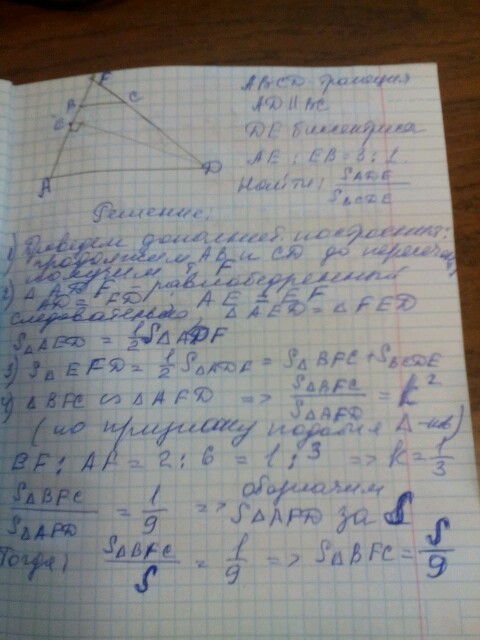 F
B
C
E
A
D
ABCD трапеция
AD || BC
DE биссектриса
AE : EB = 3 : 1
Найти: SADE / SBCDE
Решение:
1) Доведем дополнит. построения:
продолжим AB и CD до пересеч,
получим т. F
2) △ ADF - равнобедренный
AD = FD, AE = EF
следовательно, △AED = △FED
S△AED = 1/2 S△ADF
3) S△EFD = 1/2 S△ADF = S△BFC + SBCDE
4) △BFC ∽ △AFD => S△BFC / S△AFD = k²
(по признаку подобия △-ков)
BF : AF = 2 : 6 = 1 : 3 => k = 1/3
S△BFC / S△AFD = 1/9 => обозначим S△AFD за S
Тогда, S△BFC / S = 1/9 => S△BFC = S/9